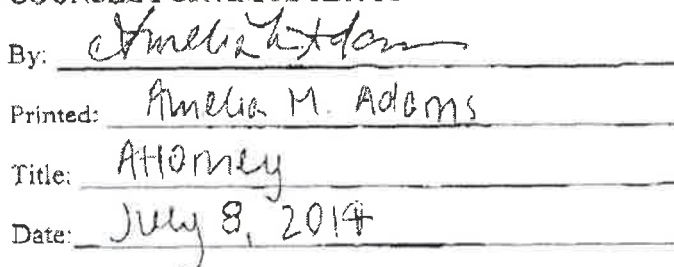 By: Amelia M Adams
Printed: Amelia M. Adams
Title: Attorney
Date: July 8, 2014